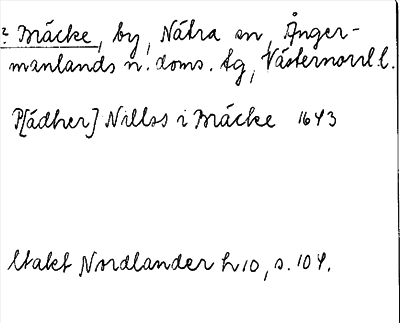 ? Mäcke, by, Nätra sn, Ånger-
manlands n. doms. tg, Västernorrl l.
P[ädher] Nillss i Mäcke 1643
Utakt Nordlander h 10, s. 104.